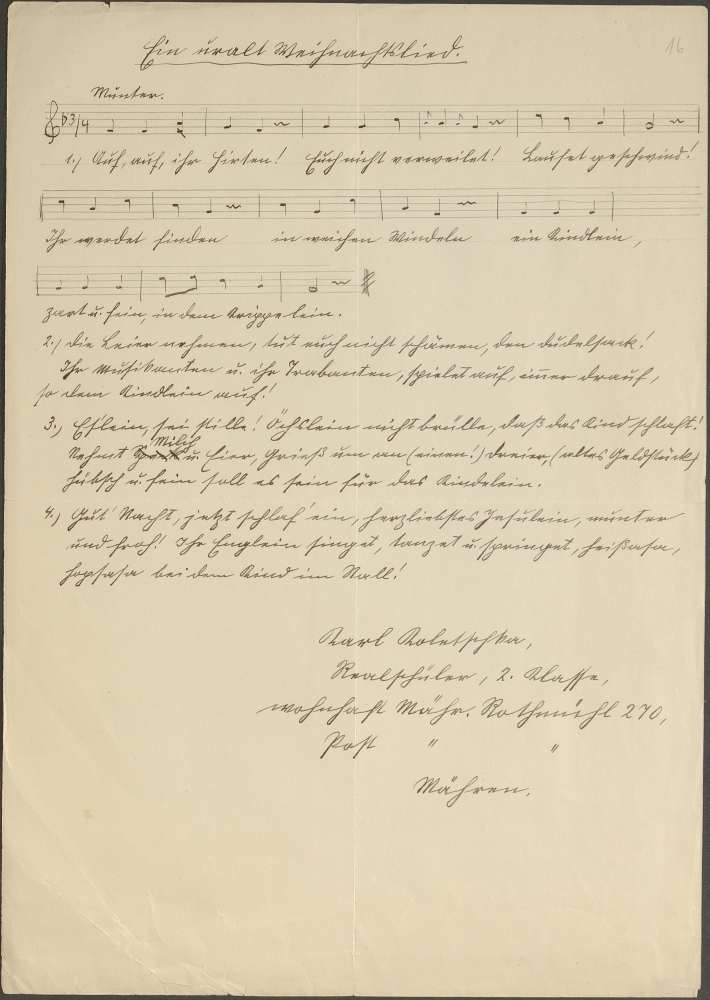 Ein uralt Weihnachtslied.
16
Munter.
3/4
1.) Auf, auf, ihr Hirten! Euch nicht verweilet! Laufet geschwind!
Ihr werdet finden in weichen Windeln ein Kindlein,
zart u. fein, in dem Krippelein.
2.) Die Leier nehmen, tut euch nicht schämen, den Dudelsack!
Ihr Musikanten u. ihr Trabanten, spielet auf, immer drauf,
so dem Kindlein auf!
3.) Eslein, sei stille! Öchslein nicht brülle, daß das Kind schlaft!
Milch
Nehmt u. Eier, Grieß um an (einen!) Dreier, (altes Geldstück)
hübsch u. fein soll es sein für das Kindelein.
4.) Gut' Nacht, jetzt schlaf' ein, herzliebstes Jesulein, munter
und froh! Ihr Englein singet, tanzet u. springet, heißasa,
hopsasa bei dem Kind im Stall!
Karl Koletschka,
Realschüler, 2. Klasse,
wohnhaft Mähr. Rothmühl 270,
Post " "
Mähren.